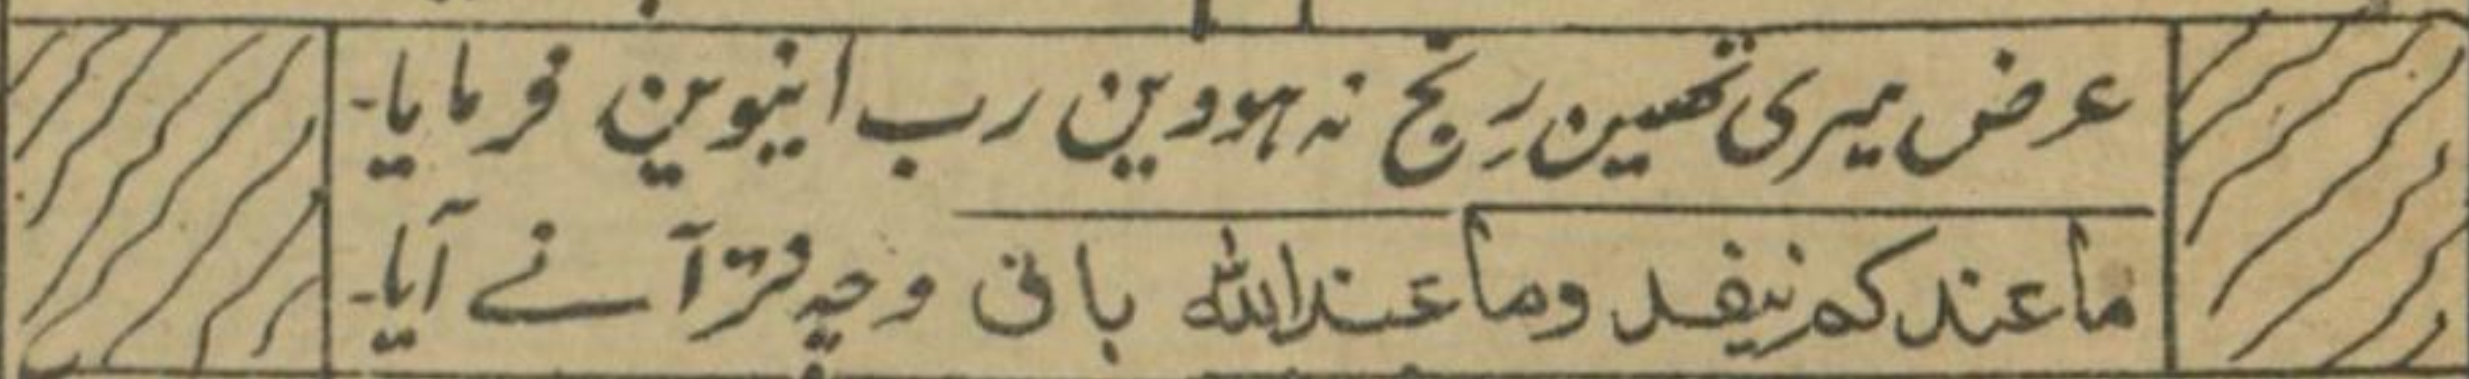 عرض میری تھین رنج نہ ہووین رب اینوین فرمایا۔
ما عندکم ینفد وما عنداللہ باق وچہ قرآنے آیا۔